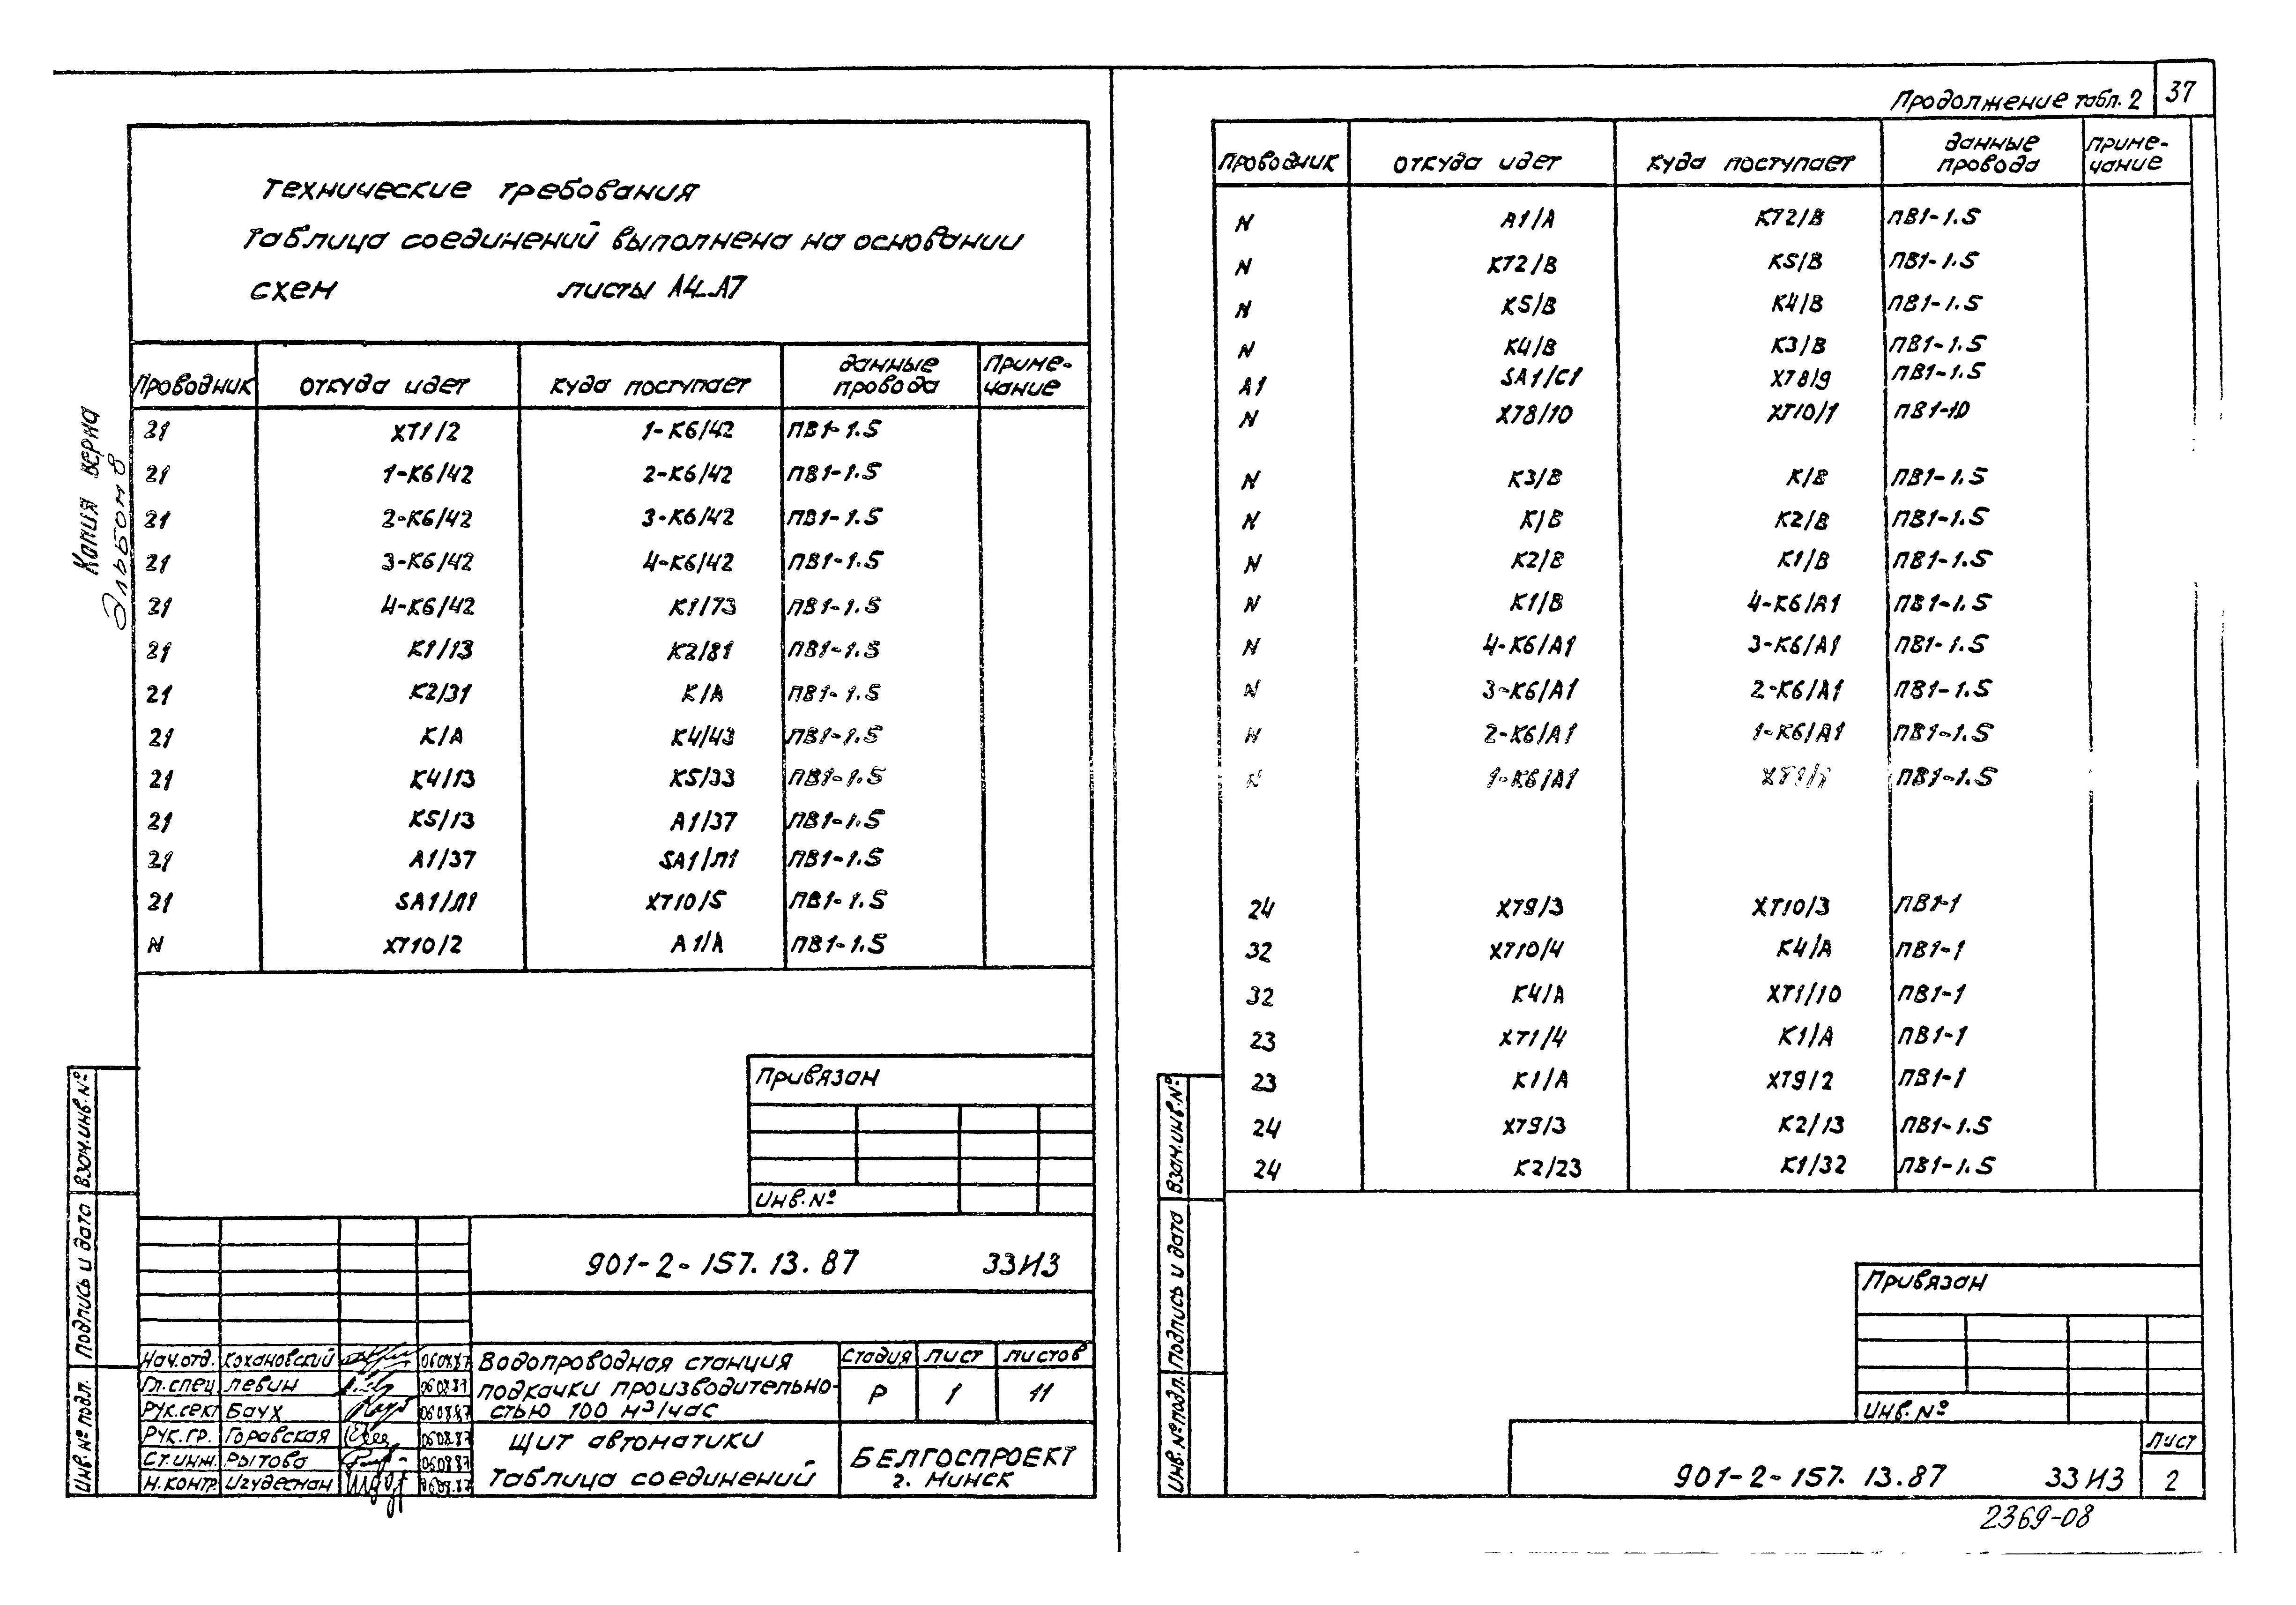 Технические требования
Таблица соединений выполнена на основании
схем листы А4...А7
Проводник откуда идет куда поступает данные провода Приме-чание
21 ХТ1/2 1-К6/42 ПВ1-1.5
21 1-К6/42 2-К6/42 ПВ1-1.5
21 2-К6/42 3-К6/42 ПВ1-1.5
21 3-К6/42 4-К6/42 ПВ1-1.5
21 4-К6/42 К1/73 ПВ1-1.5
21 К1/13 К2/81 ПВ1-1.5
21 К2/31 К/А ПВ1-1.5
21 К/А К4/43 ПВ1-1.5
21 К4/13 К5/33 ПВ1-1.5
21 К5/13 А1/37 ПВ1-1.5
21 А1/37 SA1/Л1 ПВ1-1.5
21 SA1/Л1 ХТ10/5 ПВ1-1.5
N ХТ10/2 А1/А ПВ1-1.5
Копия верна
Альбом 8
Привязан
Инв.№
Взам.инв.№
Подпись и дата
Инв.№ подл.
901-2-157.13.87 ЭЗИЗ
Нач.отд. Кохановский 06.08.87
Гл.спец Левин 06.08.87
Рук.сект Баух 06.08.87
Рук.гр. Горавская 06.08.87
Ст.инж. Рытова 06.08.87
Н.контр. 06.08.87
Водопроводная станция
подкачки производительно-
стью 100 м³/час
Щит автоматики
Таблица соединений
Стадия Лист Листов
Р 1 11
БЕЛГОСПРОЕКТ
г. Минск
Продолжение табл. 2 37
Проводник откуда идет куда поступает данные провода приме-чание
N А1/А КТ2/В ПВ1-1.5
N КТ2/В К5/В ПВ1-1.5
N К5/В К4/В ПВ1-1.5
N К4/В К3/В ПВ1-1.5
А1 SA1/С1 ХТ8/9 ПВ1-1.5
N ХТ8/10 ХТ10/1 ПВ1-1.0
N К3/В К/В ПВ1-1.5
N К/В К2/В ПВ1-1.5
N К2/В К1/В ПВ1-1.5
N К1/В 4-К6/А1 ПВ1-1.5
N 4-К6/А1 3-К6/А1 ПВ1-1.5
N 3-К6/А1 2-К6/А1 ПВ1-1.5
N 2-К6/А1 1-К6/А1 ПВ1-1.5
N 1-К6/А1 ПВ1-1.5
24 ХТ9/3 ХТ10/3 ПВ1-1
32 ХТ10/4 К4/А ПВ1-1
32 К4/А ХТ1/10 ПВ1-1
23 ХТ1/4 К1/А ПВ1-1
23 К1/А ХТ9/2 ПВ1-1
24 ХТ9/3 К2/13 ПВ1-1.5
24 К2/23 К1/32 ПВ1-1.5
Взам.инв.№
Подпись и дата
Инв.№ подл.
Привязан
Инв.№
901-2-157.13.87 ЭЗИЗ
Лист
2
2369-08